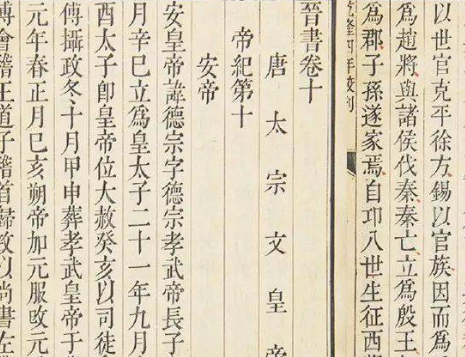 以世官克平徐方錫以官族因而爲
爲趙將與諸侯伐秦秦亡立爲殷王
爲郡子孫遂家焉自卬八世生征西
乾隆四年校刊
晉書卷十
唐太宗文皇帝
帝紀第十
安帝
安皇帝諱德宗字德宗孝武帝長子
月辛巳立爲皇太子二十一年九月
酉太子卽皇帝位大赦癸亥以司徒
傅攝政冬十月甲申葬孝武皇帝于
元年春正月己亥朔帝加元服改元
傅會稽王道子稽首歸政以尚書左